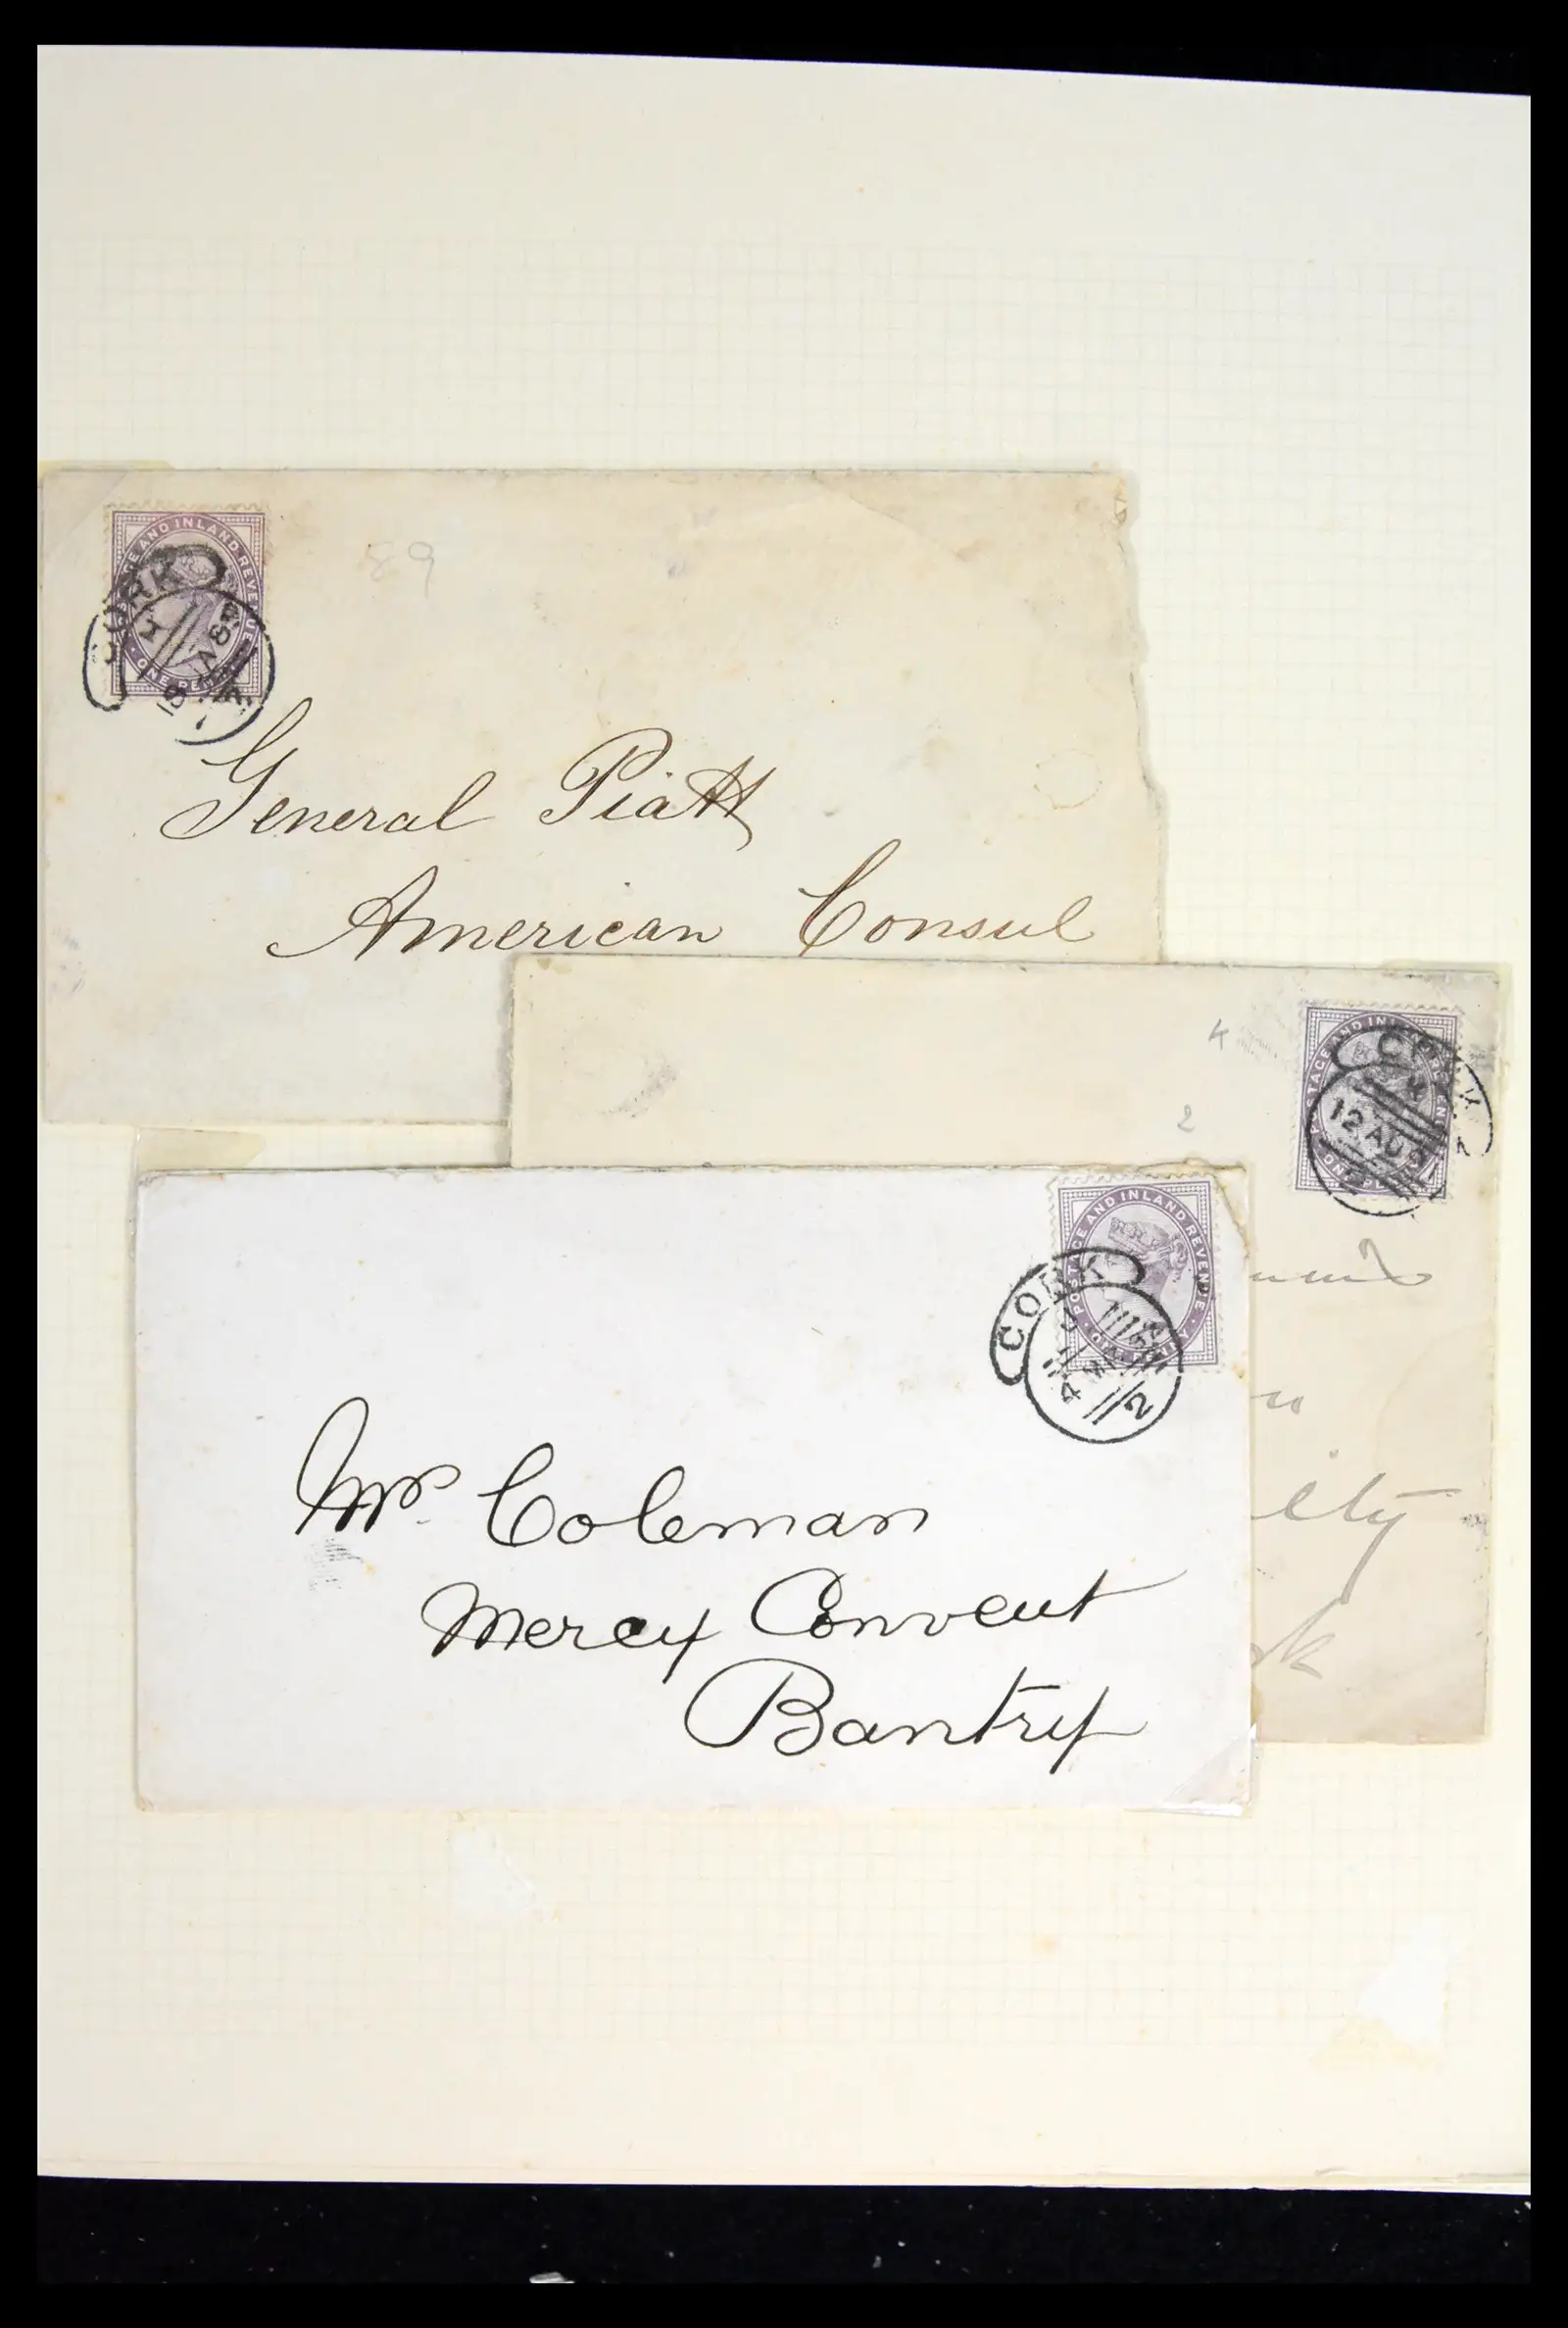 POSTAGE AND INLAND REVENUE
ONE PENNY
CORK
89
General Piatt
American Consul
POSTAGE AND INLAND REVENUE
12 AU
4
2
elty
rk
POSTAGE AND INLAND REVENUE
CORK
4
2
Mrs Coleman
Mercy Convent
Bantry